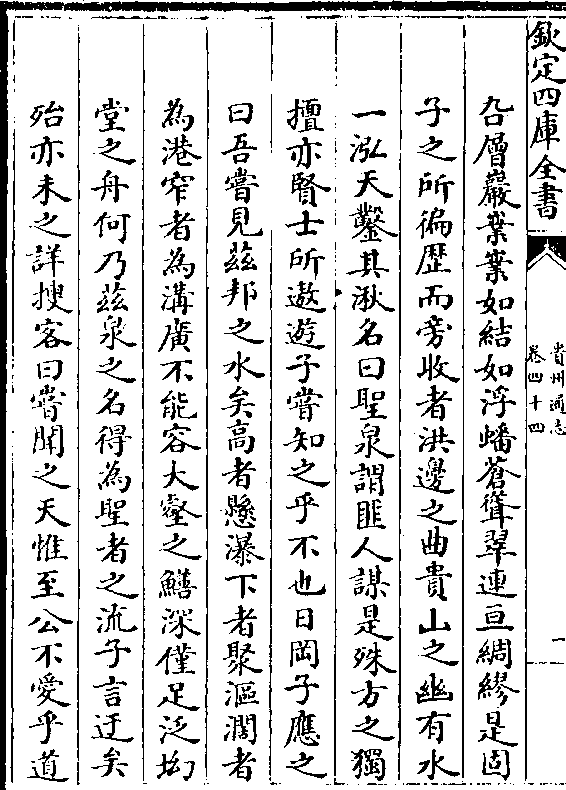 欽定四庫全書
貴州通志
卷四十四
一
㕣層巖業業如結如浮蟠蒼聳翠連亘綢繆是固
子之所徧歴而旁收者洪邊之曲貴山之幽有水
一泓天鑿其湫名曰聖泉謂匪人謀是殊方之獨
擅亦賢士所遨遊子嘗知之乎不也日岡子應之
曰吾嘗見茲邦之水矣高者懸瀑下者聚漚濶者
為港窄者為溝廣不能容大壑之鱔深僅足泛坳
堂之舟何乃茲泉之名得為聖者之流子言迂矣
殆亦未之詳搜客曰嘗聞之天惟至公不愛乎道